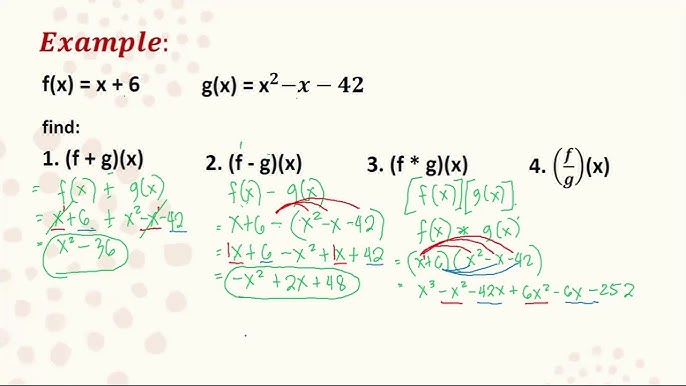 Example:
f(x) = x + 6
g(x) = x² − x − 42
find:
1. (f + g)(x)
= f(x) + g(x)
= x + 6 + x² - x - 42
= x² - 36
2. (f - g)(x)
f(x) - g(x)
= x + 6 - (x² - x - 42)
= 1x + 6 - x² + 1x + 42
= -x² + 2x + 48
3. (f * g)(x)
[f(x)][g(x)]
f(x) * g(x)
= (x + 6)(x² - x - 42)
= x³ - x² - 42x + 6x² - 6x - 252
4. (f/g)(x)